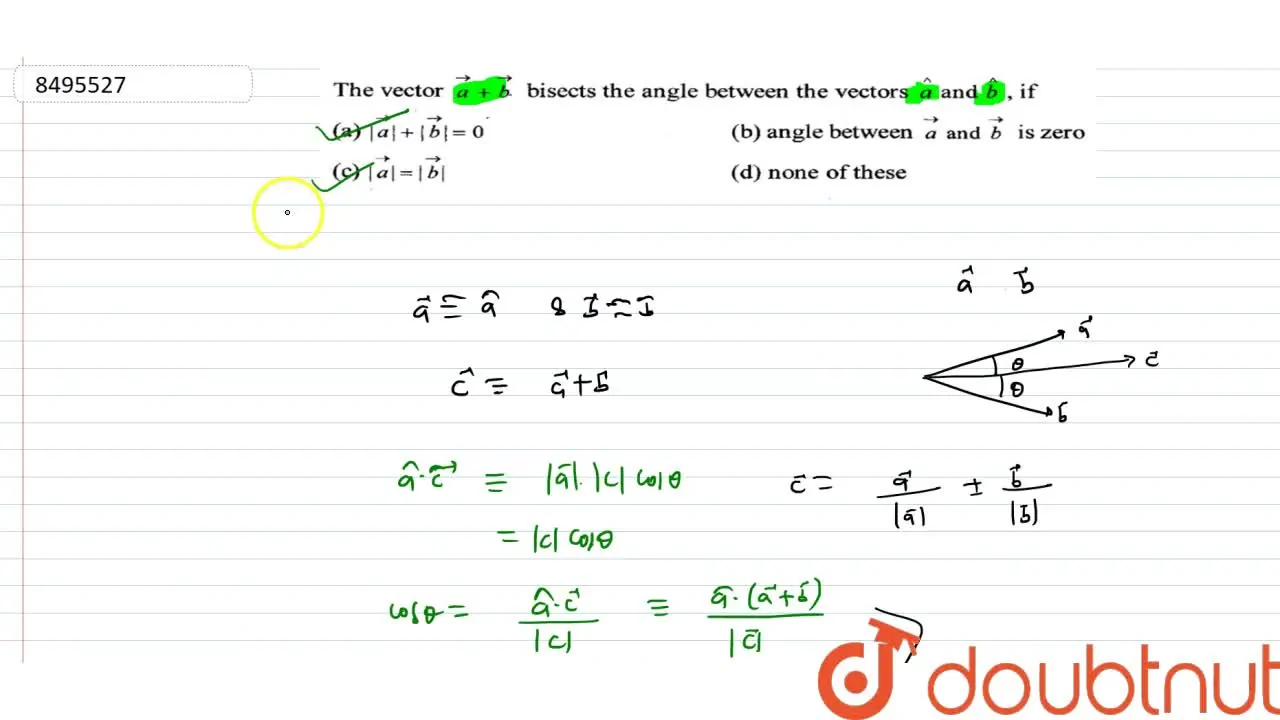 8495527
The vector →a + →b bisects the angle between the vectors â and b̂, if
(a) |→a| + |→b| = 0 (b) angle between →a and →b is zero
(c) |→a| = |→b| (d) none of these
→a →b
→a ≡ â & →b ≈ b
→a
θ →c
θ
→b
→c ≡ →a + b
â · →c ≡ |a| · |c| cosθ
c = →a/|a| ± →b/|b|
= |c| cosθ
cosθ = â · →c / |c| ≡ a · (→a + b) / |c|
doubtnut